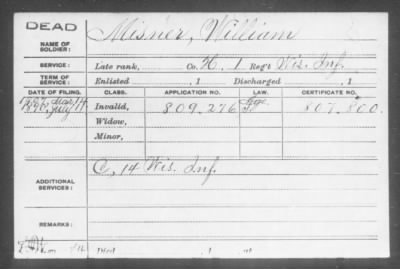 DEAD
NAME OF SOLDIER: Misner, William
SERVICE: Late rank, Co. H, 1 Reg't Wis. Inf.
TERM OF SERVICE: Enlisted , 1 Discharged , 1
DATE OF FILING. CLASS. APPLICATION NO. LAW. CERTIFICATE NO.
July Invalid, 809.276 807.800.
Widow,
Minor,
ADDITIONAL SERVICES: C, 14 Wis. Inf.
REMARKS:
Died , 1 , at